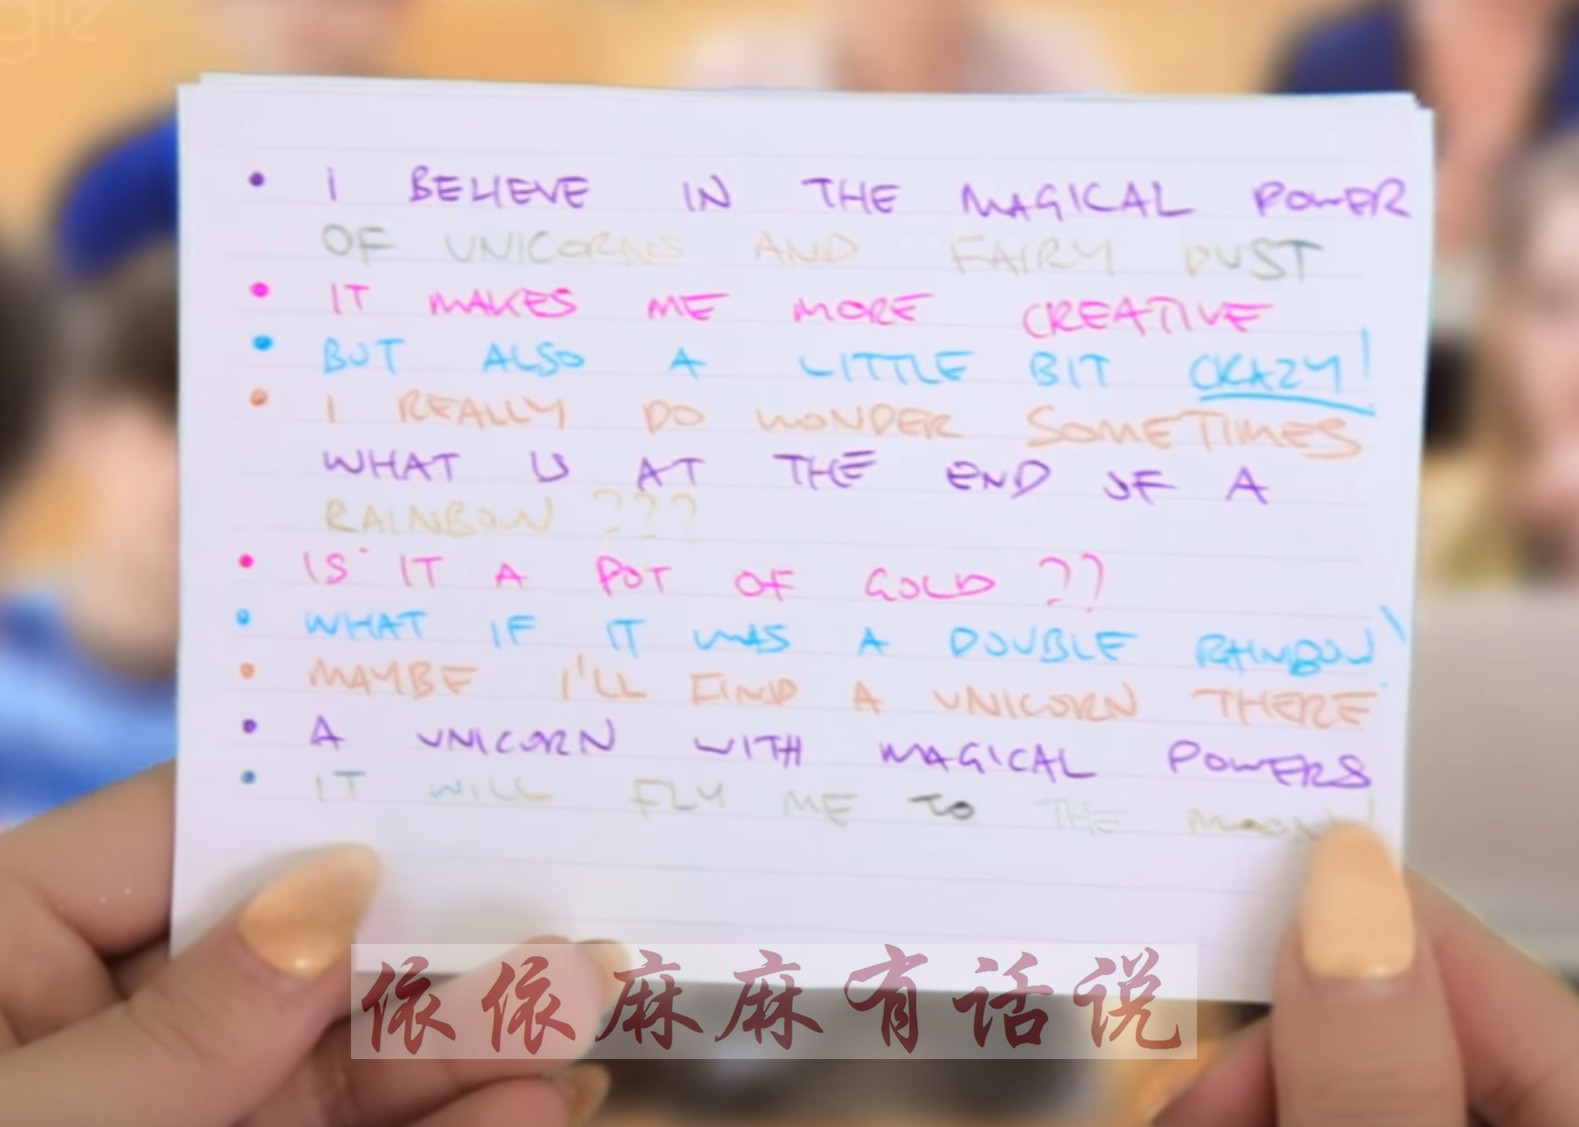 gle
• I BELIEVE IN THE MAGICAL POWER
OF UNICORNS AND FAIRY DUST
• IT MAKES ME MORE CREATIVE
• BUT ALSO A LITTLE BIT CRAZY!
• I REALLY DO WONDER SOMETIMES
WHAT IS AT THE END OF A
RAINBOW ???
• IS IT A POT OF GOLD ??
• WHAT IF IT WAS A DOUBLE RAINBOW
• MAYBE I'LL FIND A UNICORN THERE
• A UNICORN WITH MAGICAL POWERS
• IT WILL FLY ME TO THE MOON!
依依麻麻有话说